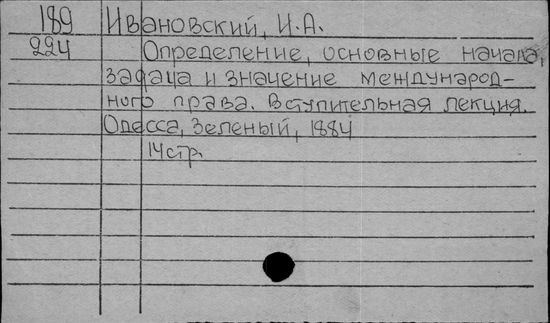 189 Ивановский, И.А.
224 Определение, основные начала,
задача и значение международ-
ного права. Вступительная лекция.
Одесса, Зеленый, 1884
14 стр.